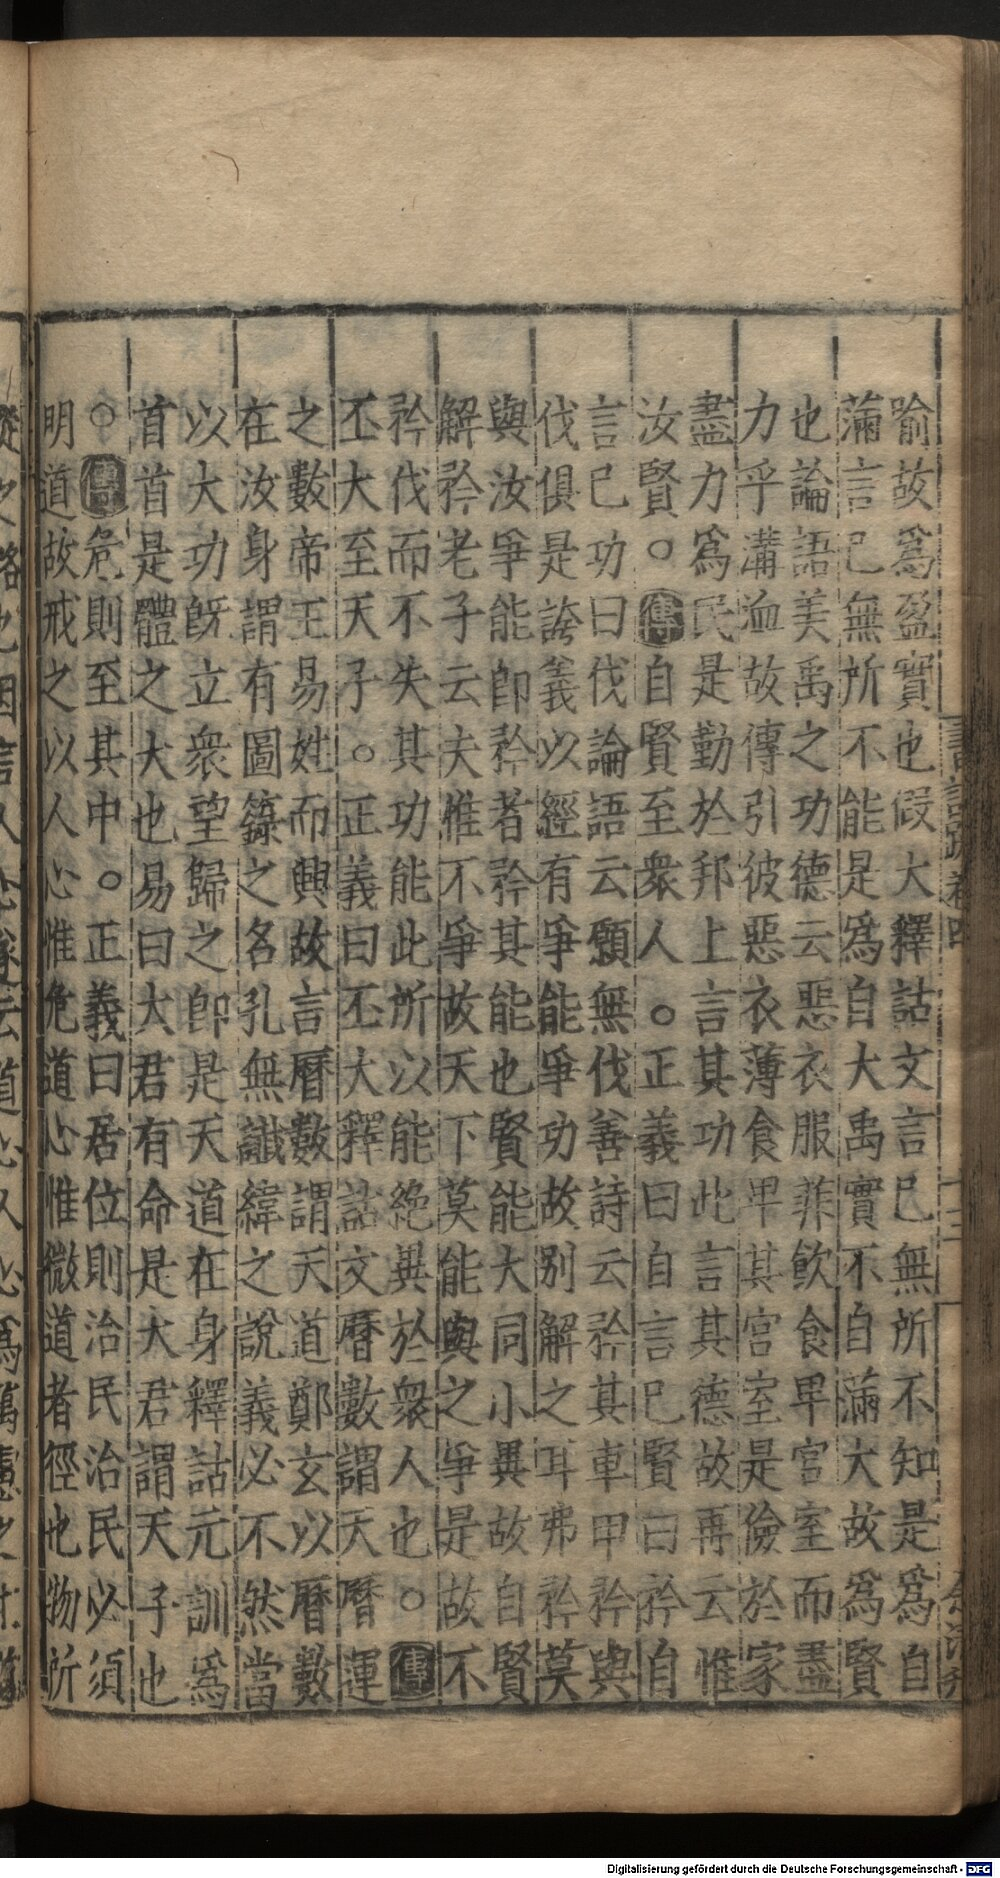 喻故爲盈實也假大釋詁文言已無所不知是爲自
滿言已無所不能是爲自大禹實不自滿大故爲賢
也論語美禹之功德云惡衣服菲飲食卑宮室而盡
力乎溝洫故傳引彼惡衣薄食卑其宮室是儉於家
盡力爲民是勤於邦上言其功此言其德故再云惟
汝賢○傳自賢至衆人○正義曰自言已賢曰矜自
言已功曰伐論語云願無伐善詩云矜其車甲矜與
伐俱是誇義以經有爭能爭功故別解之耳弗矜莫
與汝爭能卽矜者矜其能也賢能大同小異故自賢
解矜老子云夫惟不爭故天下莫能與之爭是故不
矜伐而不失其功能此所以能絶異於衆人也○傳
丕大至天子○正義曰丕大釋詁文曆數謂天曆運
之數帝王易姓而興故言曆數謂天道鄭玄以曆數
在汝身謂有圖籙之名孔無讖緯之說義必不然當
以大功旣立衆望歸之卽是天道在身釋詁元訓爲
首首是體之大也易曰大君有命是大君謂天子也
○傳危則至其中○正義曰居位則治民治民必須
明道故戒之以人心惟危道心惟微道者徑也物所
Digitalisierung gefördert durch die Deutsche Forschungsgemeinschaft - DFG